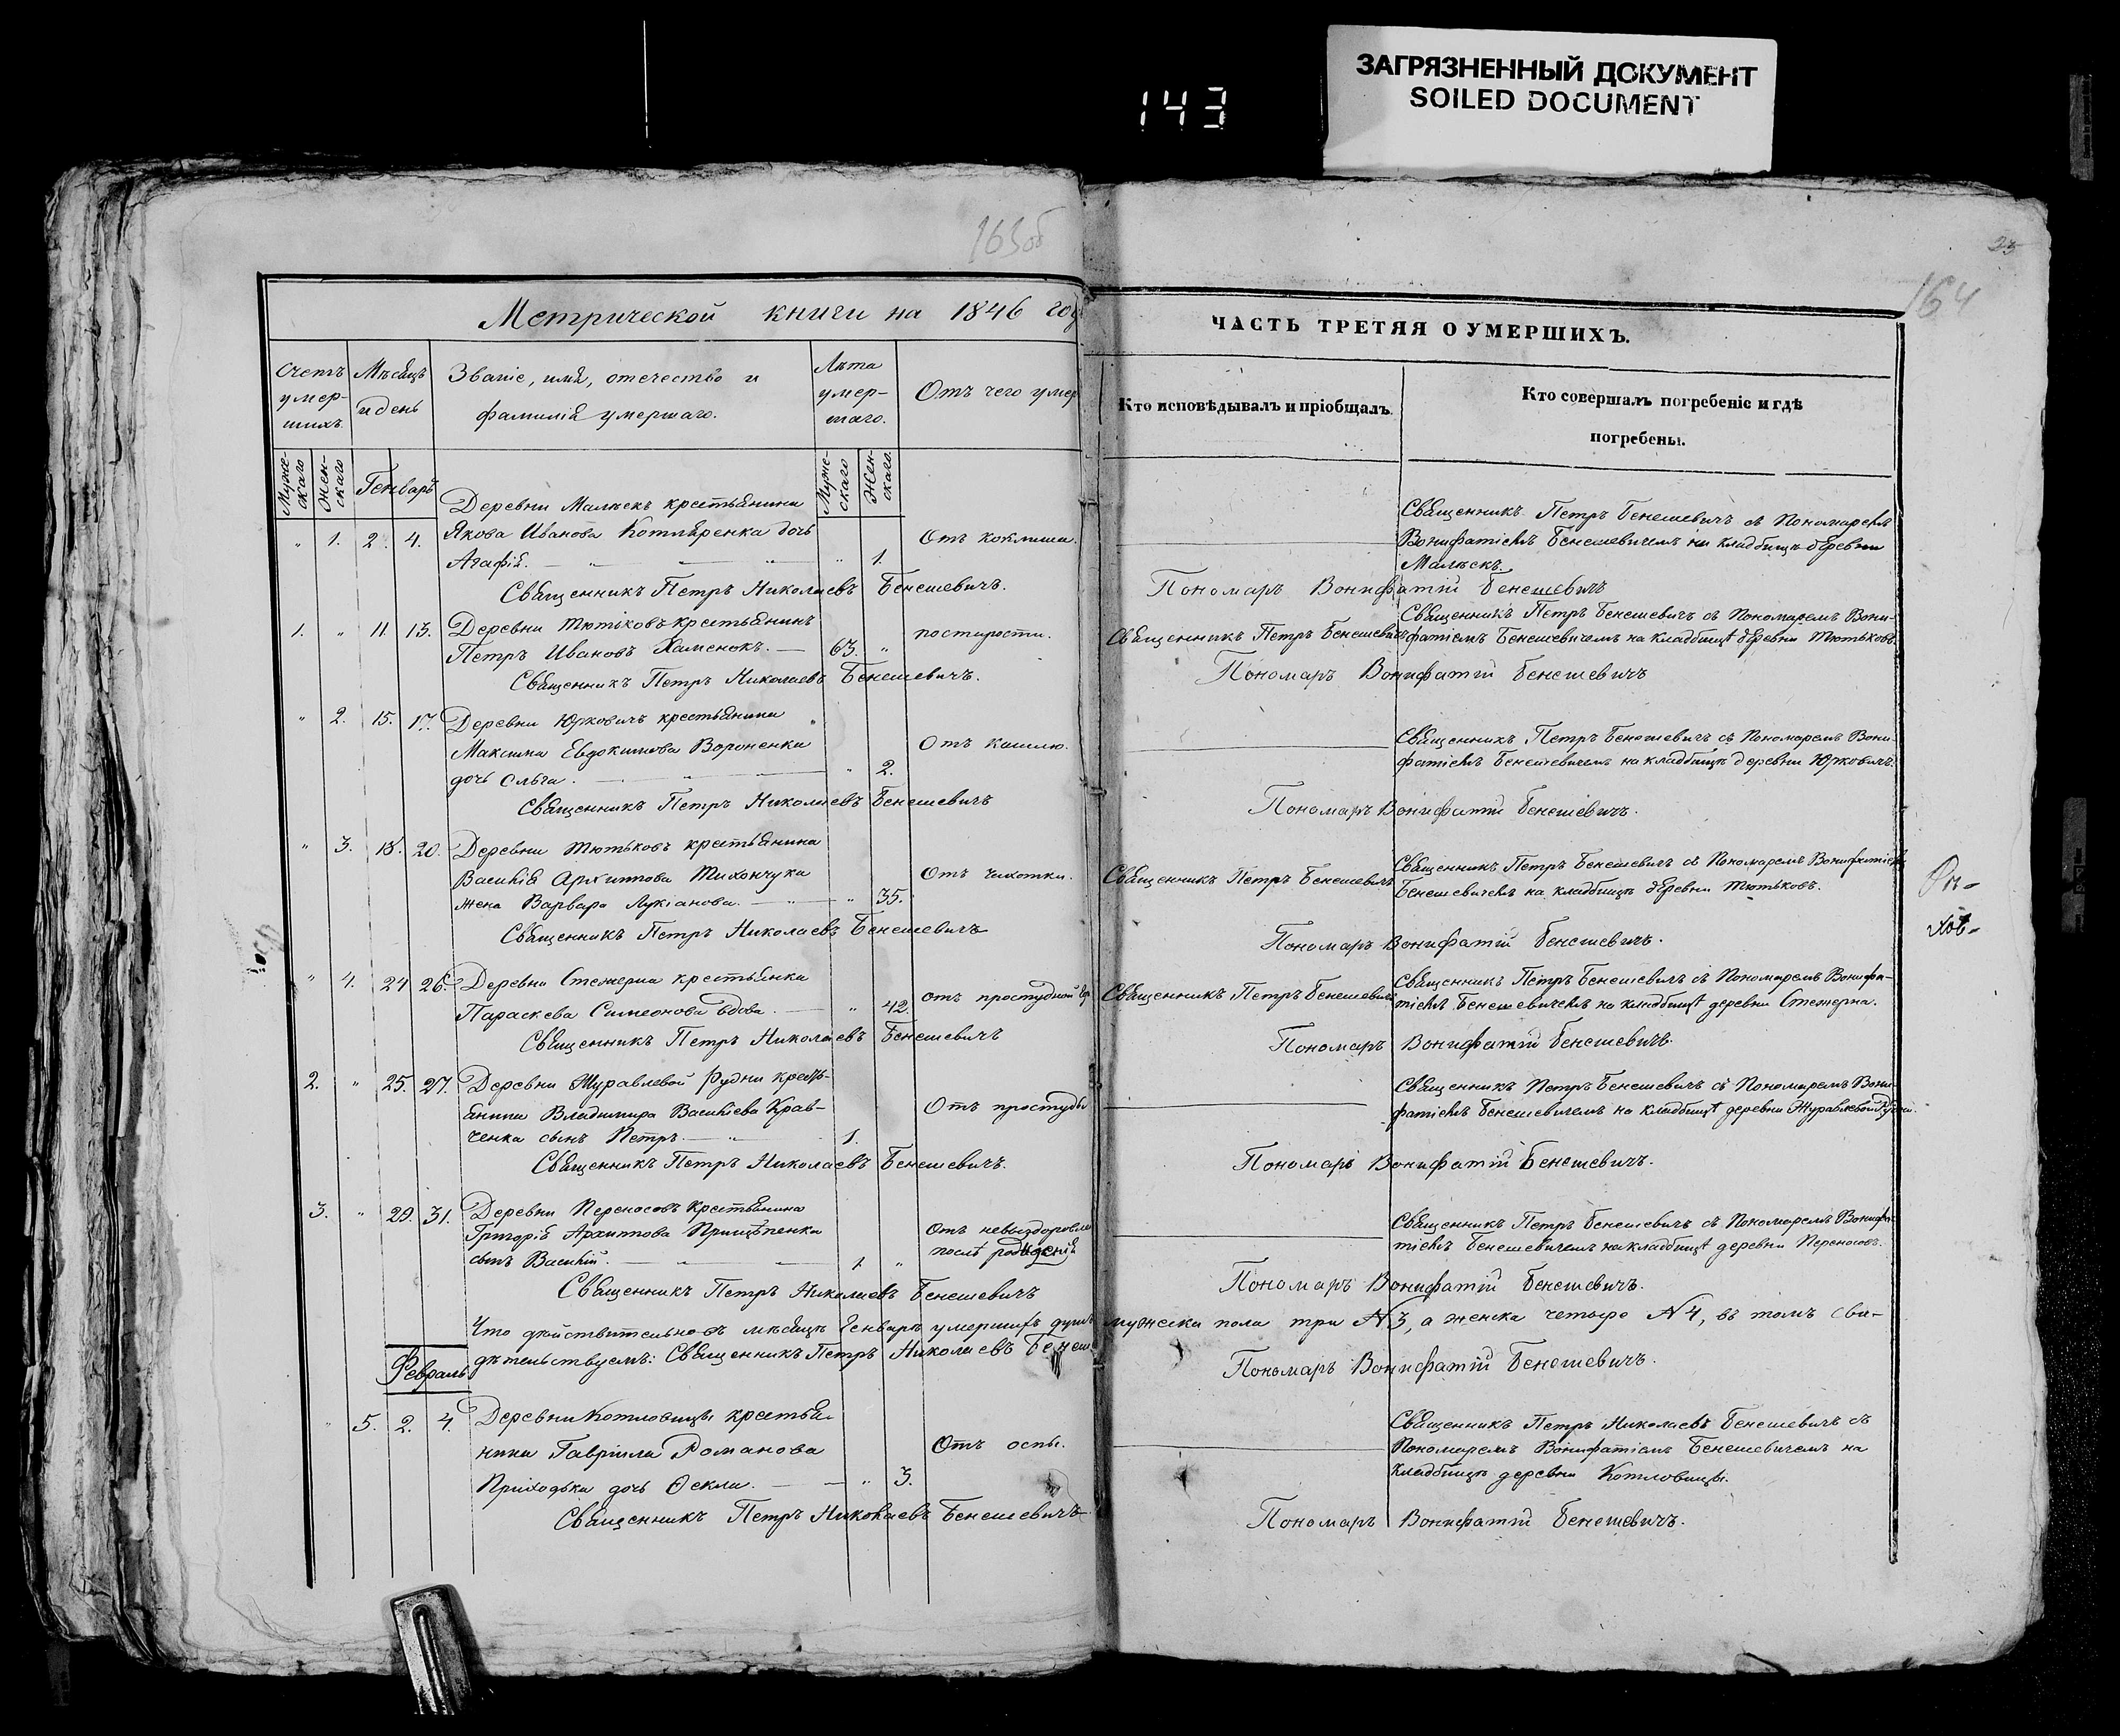 ЗАГРЯЗНЕННЫЙ ДОКУМЕНТ
SOILED DOCUMENT
143
163об
23
164
Метрической книги на 1846 год
ЧАСТЬ ТРЕТЯЯ О УМЕРШИХЪ.
Счетъ умер-шихъ.
Мѣсяцъ и день
Званіе, имя, отечество и
фамилія умершаго.
Лѣта умер-шаго.
Отъ чего умер
Кто исповѣдывалъ и пріобщалъ.
Кто совершалъ погребеніе и гдѣ
погребены.
Муже-скаго
Жен-скаго
Генваръ
Муже-скаго
Жен-скаго.
Деревни Малѣекъ крестьянина
„ 1. 2. 4. Якова Иванова Котляренка дочь
Агафія. — „ — „ „ 1. Отъ коклюша.
Священникъ Петръ Бенешевичъ съ Пономаремъ
Вонифатіемъ Бенешевичемъ на кладбищѣ деревни
Малѣекъ.
Священникъ Петръ Николаевъ Бенешевичъ.
Пономаръ Вонифатій Бенешевичъ
1. „ 11. 13. Деревни Тютьковъ крестьянинъ
Петръ Ивановъ Хаменокъ. — 63. „ по старости.
Священникъ Петръ Бенешевичъ
Священникъ Петръ Бенешевичъ съ Пономаремъ Вони-
фатіемъ Бенешевичемъ на кладбищѣ деревни Тютьковъ.
Священникъ Петръ Николаевъ Бенешевичъ.
Пономаръ Вонифатій Бенешевичъ
„ 2. 15. 17. Деревни Юрковичъ крестьянина
Максима Евдокимова Вороненка
дочь Ольга. — „ — „ 2. Отъ кашлю.
Священникъ Петръ Бенешевичъ съ Пономаремъ Вони-
фатіемъ Бенешевичемъ на кладбищѣ деревни Юрковичъ.
Священникъ Петръ Николаевъ Бенешевичъ
Пономаръ Вонифатій Бенешевичъ.
„ 3. 18. 20. Деревни Тютьковъ крестьянина
Василія Архиппова Тихончука
жена Варвара Лукіанова. — „ — „ 35. Отъ чахотки.
Священникъ Петръ Бенешевичъ
Священникъ Петръ Бенешевичъ съ Пономаремъ Вонифатіемъ
Бенешевичемъ на кладбищѣ деревни Тютьковъ.
Священникъ Петръ Николаевъ Бенешевичъ
Пономаръ Вонифатій Бенешевичъ.
„ 4. 24 26. Деревни Стежерна крестьянка
Параскева Симеонова вдова. — „ 42. отъ простудной
Священникъ Петръ Бенешевичъ
Священникъ Петръ Бенешевичъ съ Пономаремъ Вонифа-
тіемъ Бенешевичемъ на кладбищѣ деревни Стежерна.
Священникъ Петръ Николаевъ Бенешевичъ
Пономаръ Вонифатій Бенешевичъ.
2. „ 25. 27. Деревни Журавлевой Рудни кресть-
янина Владимира Василіева Крав-
ченка сынъ Петръ. — „ 1. Отъ простуды
Священникъ Петръ Бенешевичъ съ Пономаремъ Вони-
фатіемъ Бенешевичемъ на кладбищѣ деревни Журавлевой Рудни.
Священникъ Петръ Николаевъ Бенешевичъ.
Пономаръ Вонифатій Бенешевичъ.
3. „ 29. 31. Деревни Переносовъ крестьянина
Григорія Архиппова Прищѣпенка
сынъ Василій. — „ — „ 1. „ Отъ невыздоровле
послѣ рожденія
Священникъ Петръ Бенешевичъ съ Пономаремъ Вонифа-
тіемъ Бенешевичемъ на кладбищѣ деревни Переносовъ.
Священникъ Петръ Николаевъ Бенешевичъ
Пономаръ Вонифатій Бенешевичъ.
Что дѣйствительно въ мѣсяцѣ Генварѣ умершихъ душъ мужеска пола три №3, а женска четыре №4, въ томъ сви-
дѣтельствуемъ: Священникъ Петръ Николаевъ Бенеш
Пономаръ Вонифатій Бенешевичъ.
Февраль
„ 5. 2. 4. Деревни Котловицы крестья-
нина Гавріила Романова
Приходька дочь Ѳекла. — — „ 3. Отъ оспы.
Священникъ Петръ Николаевъ Бенешевичъ съ
Пономаремъ Вонифатіемъ Бенешевичемъ на
кладбищѣ деревни Котловицы.
Священникъ Петръ Николаевъ Бенешевичъ
Пономаръ Вонифатій Бенешевичъ.